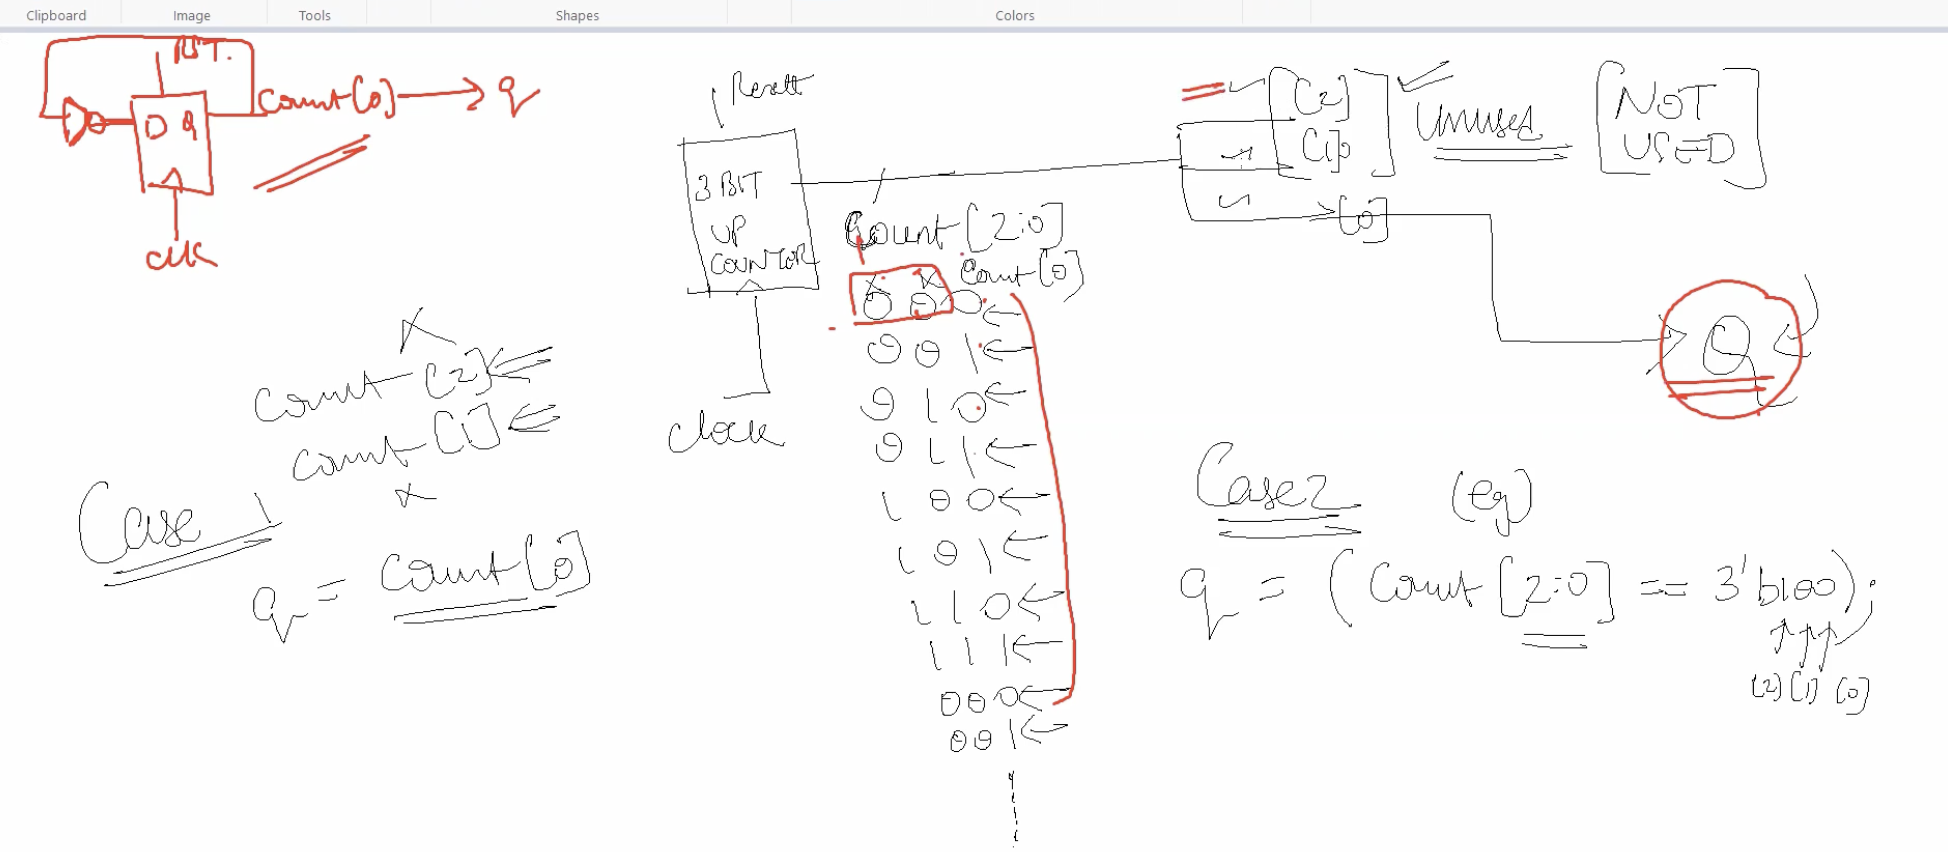 Clipboard
Image
Tools
Shapes
Colors
RST.
D Q
count[0] → q
clk
Reset
3 BIT
UP
COUNTOR
clock
Count[2:0]
Count[0]
x x
0 0 0
0 0 1
0 1 0
0 1 1
1 0 0
1 0 1
1 1 0
1 1 1
0 0 0
0 0 1
[2]
[1]
[0]
Unused
NOT
USED
Q
x
count [2]
count [1]
x
Case 1
q = count[0]
Case 2 (eq)
q = (Count [2:0] == 3'b100);
[2] [1] [0]